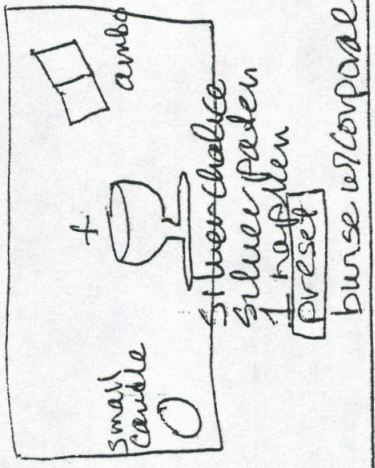 small
candle
ambo
silver chalice
silver paten
1 napken
preset
burse w/corporal